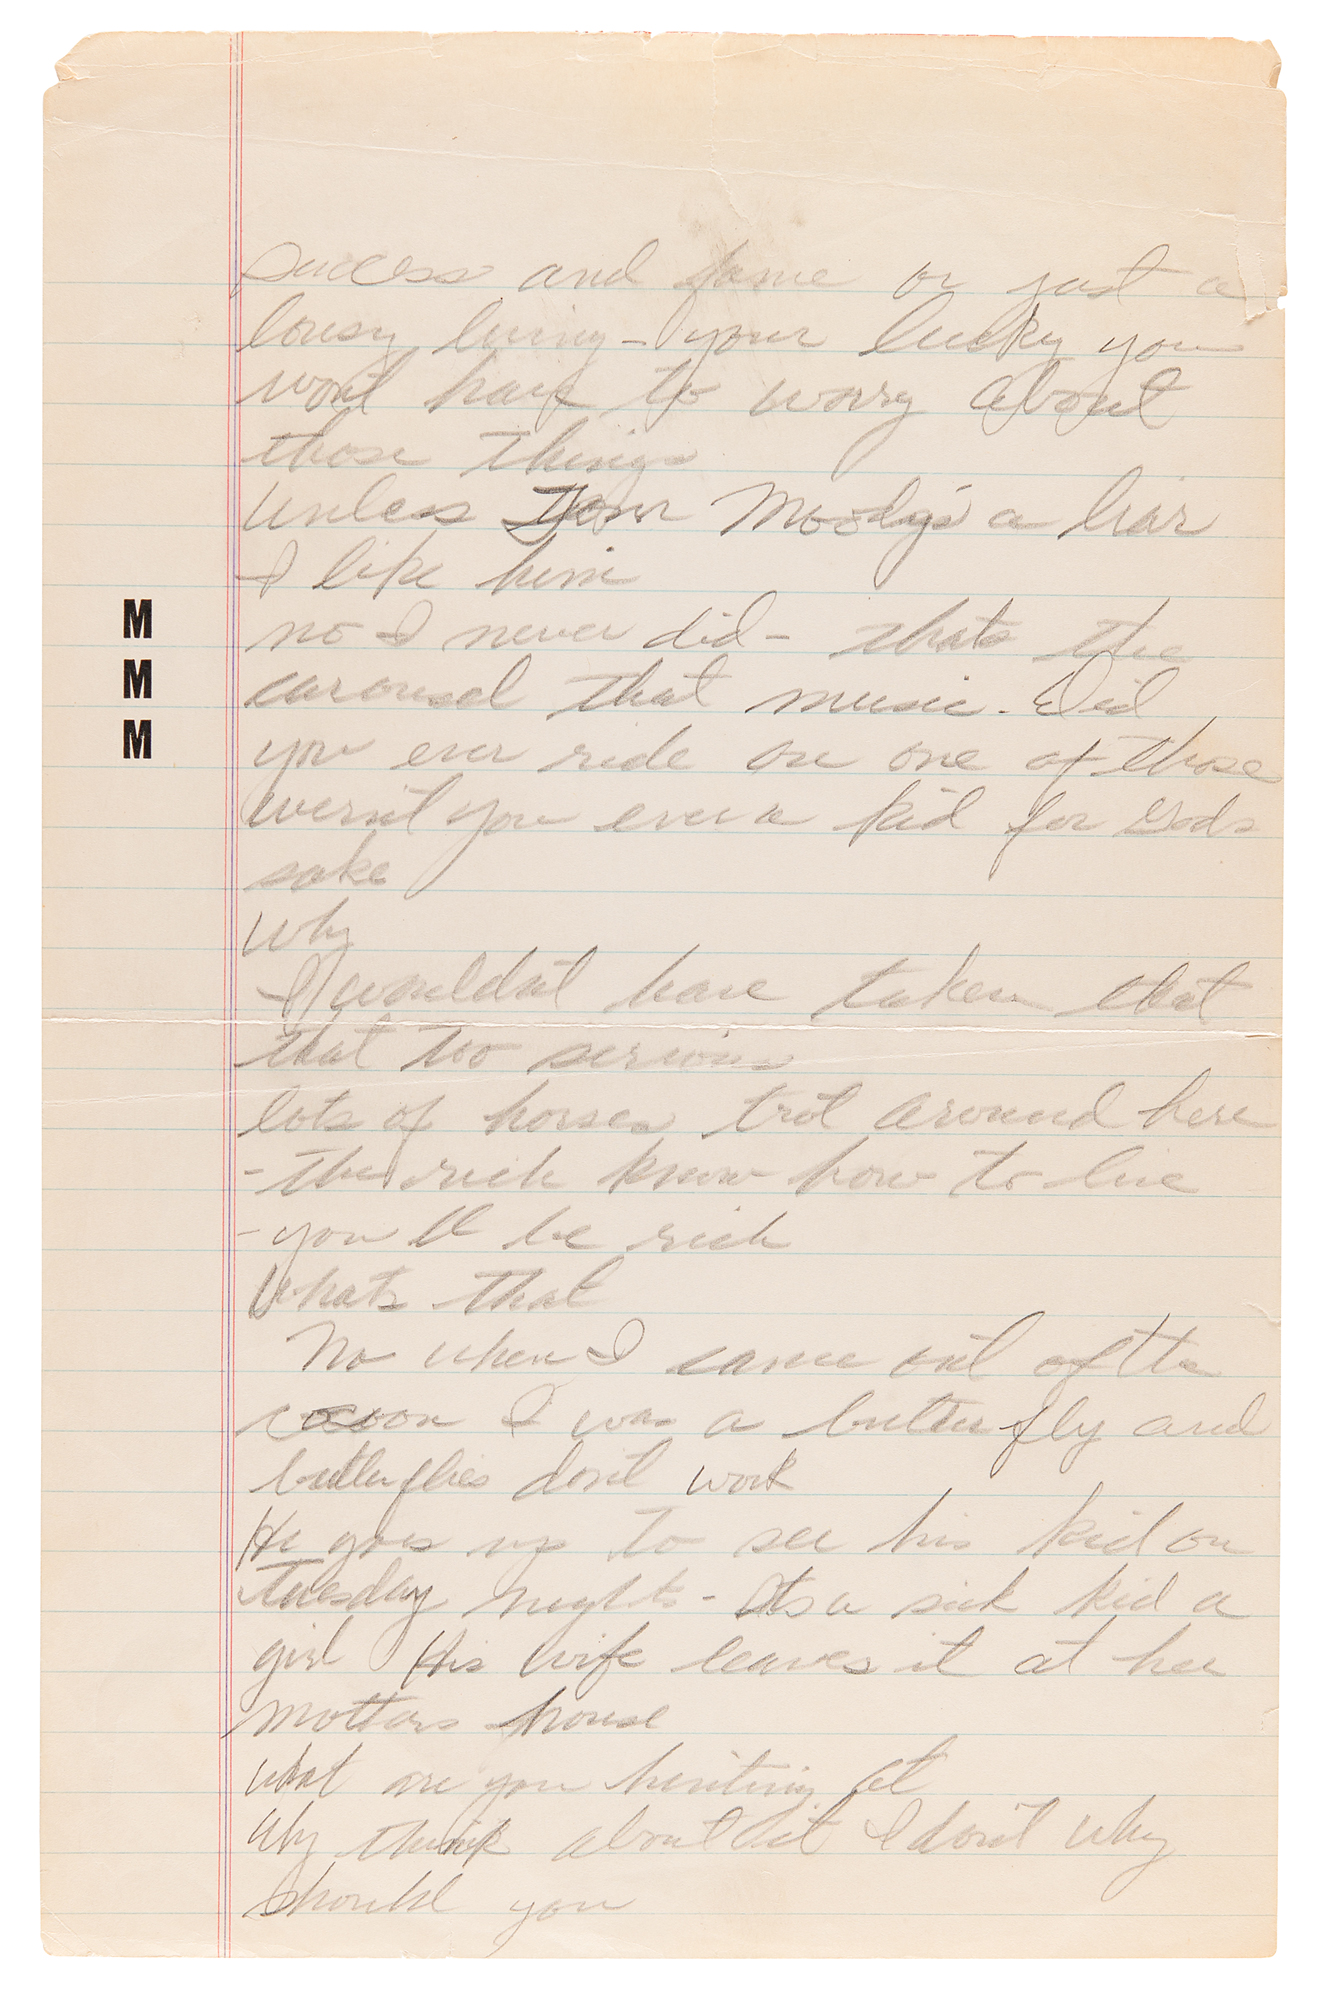 success and fame or just a
lousy living - your lucky you
won't have to worry about
those things
unless Tom Moody's a liar
I like him
no I never did - thats the
M
carousel that music. Did
M
you ever ride on one of those
M
wern't you ever a kid for Gods
sake
Why
I wouldn't have taken that
that too serious
lots of horses trot around here
- the rich know how to live
- you ll be rich
Whats that
No when I came out of the
cocoon I was a butterfly and
butterflies don't work
He goes up to see his kid on
Tuesday nights - Its a sick kid a
girl His wife leaves it at her
mothers house
what are you hinting at
Why think about it I don't why
should you